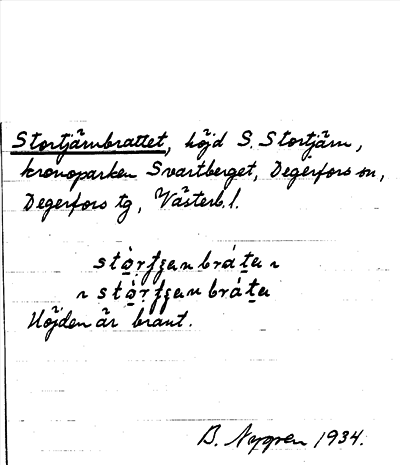 Stortjärnbrattet, höjd S. Stortjärn,
kronoparken Svartberget, Degerfors sn,
Degerfors tg, Västerb. l.
Höjden är brant.
B. Nygren 1934.